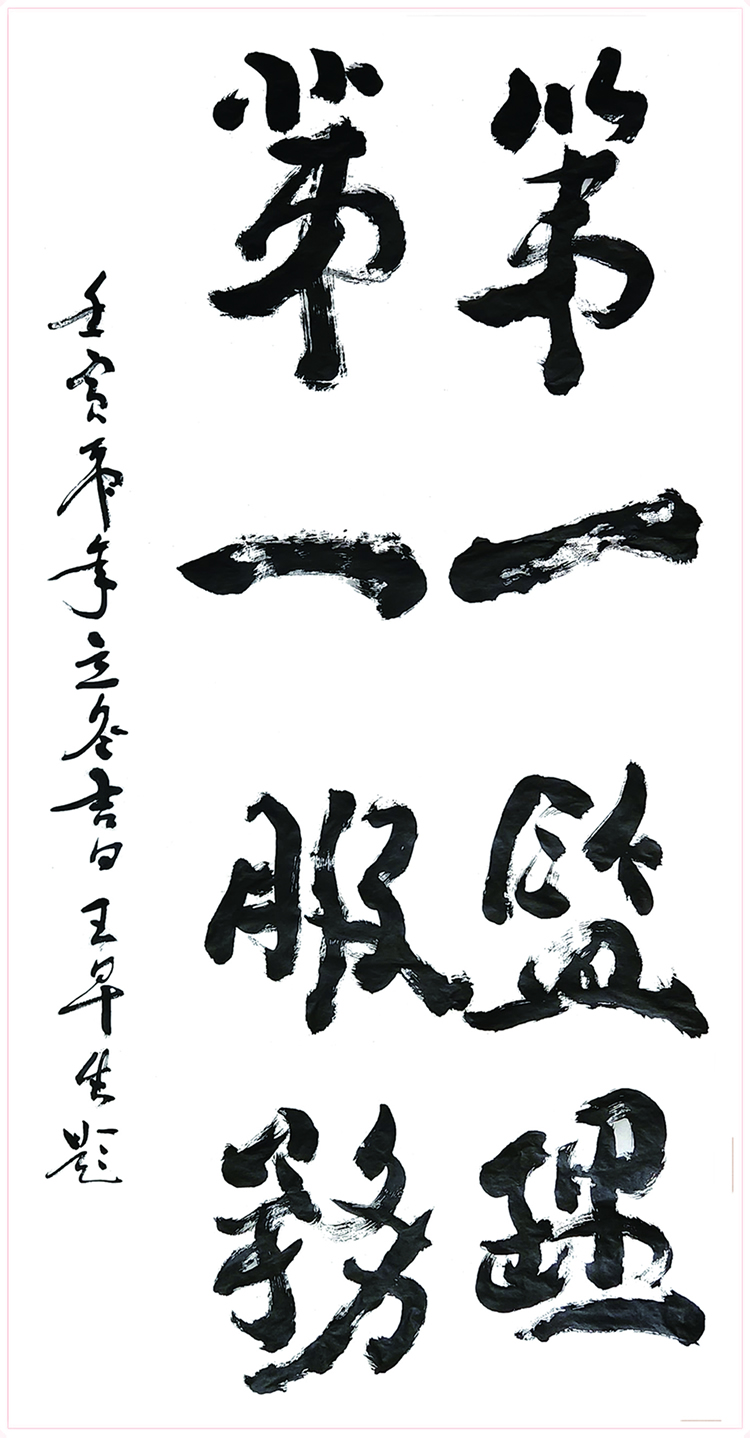 第一監理
第一服務
壬寅虎年立冬吉日 王早生题